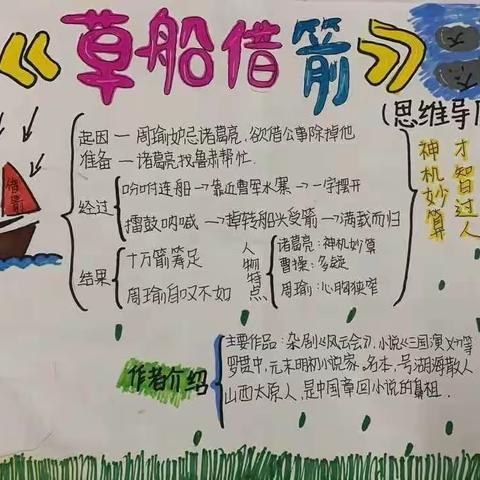 《草船借箭》
(思维导
借箭
起因 — 周瑜妒忌诸葛亮,欲借公事除掉他
准备 — 诸葛亮找鲁肃帮忙.
经过
吩咐连船→靠近曹军水寨→一字摆开
擂鼓呐喊→掉转船头受箭→满载而归
结果
十万箭筹足
周瑜自叹不如
人物特点
诸葛亮:神机妙算
曹操:多疑
周瑜:心胸狭窄
才智过人
神机妙算
作者介绍
主要作品:杂剧《风云会》,小说《三国演义》等
罗贯中,元末明初小说家,名本,号湖海散人
山西太原人,是中国章回小说的鼻祖.